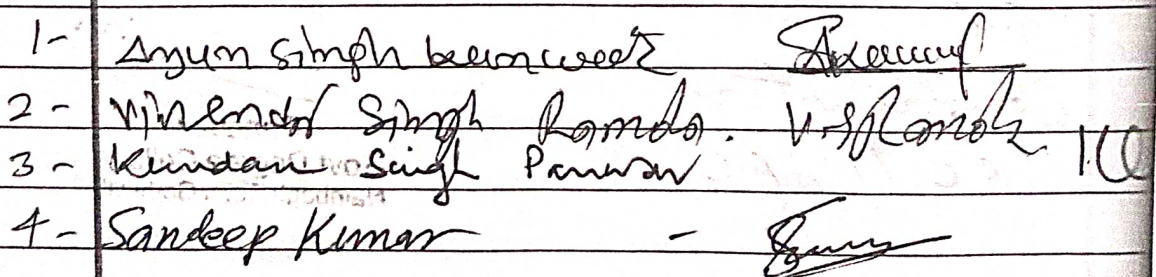 1- Arjun Singh kunwar
2- Virendar Singh Ramola. V.S Ramola
3- Kundan Singh Panwar
4- Sandeep Kumar -